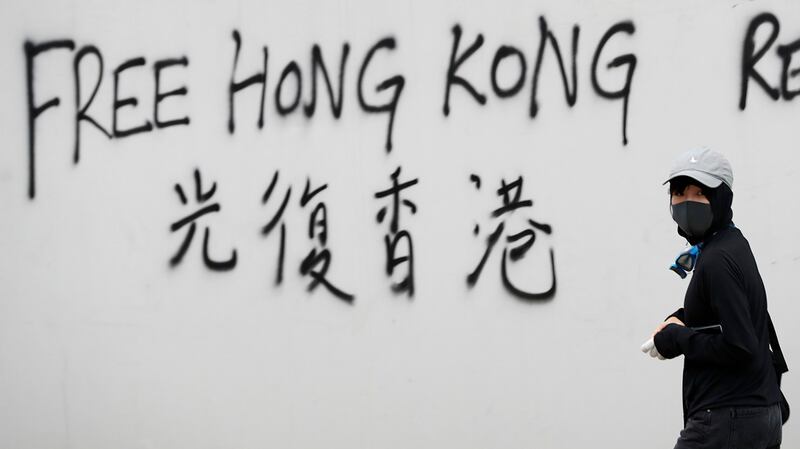 FREE HONG KONG RE
光復香港